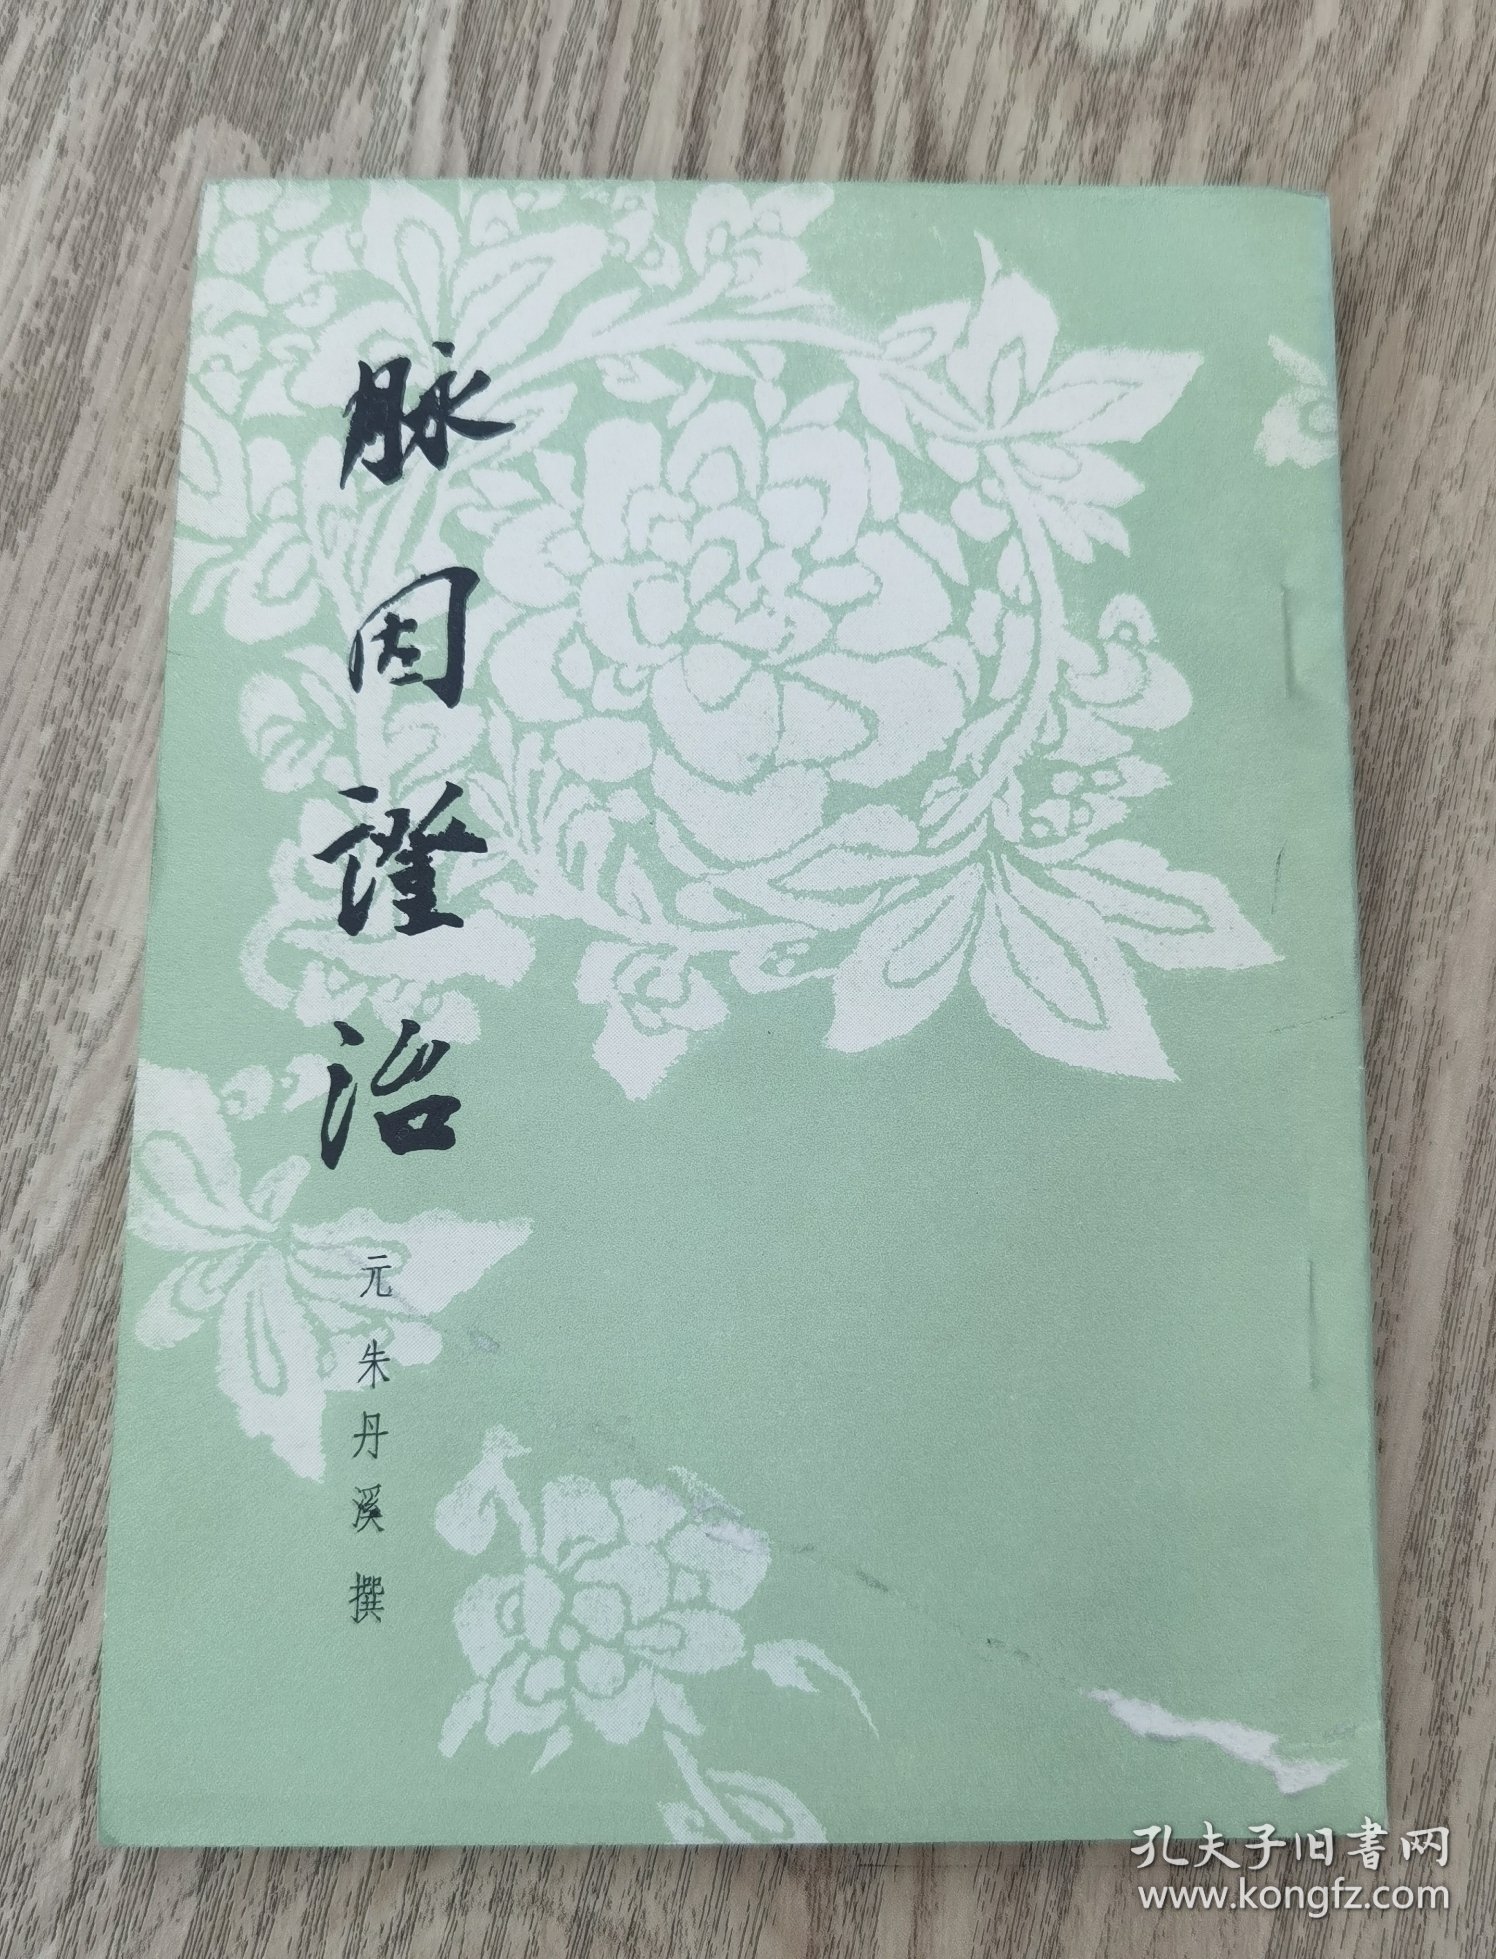 脉因證治
元朱丹溪撰
孔夫子旧書网
www.kongfz.com